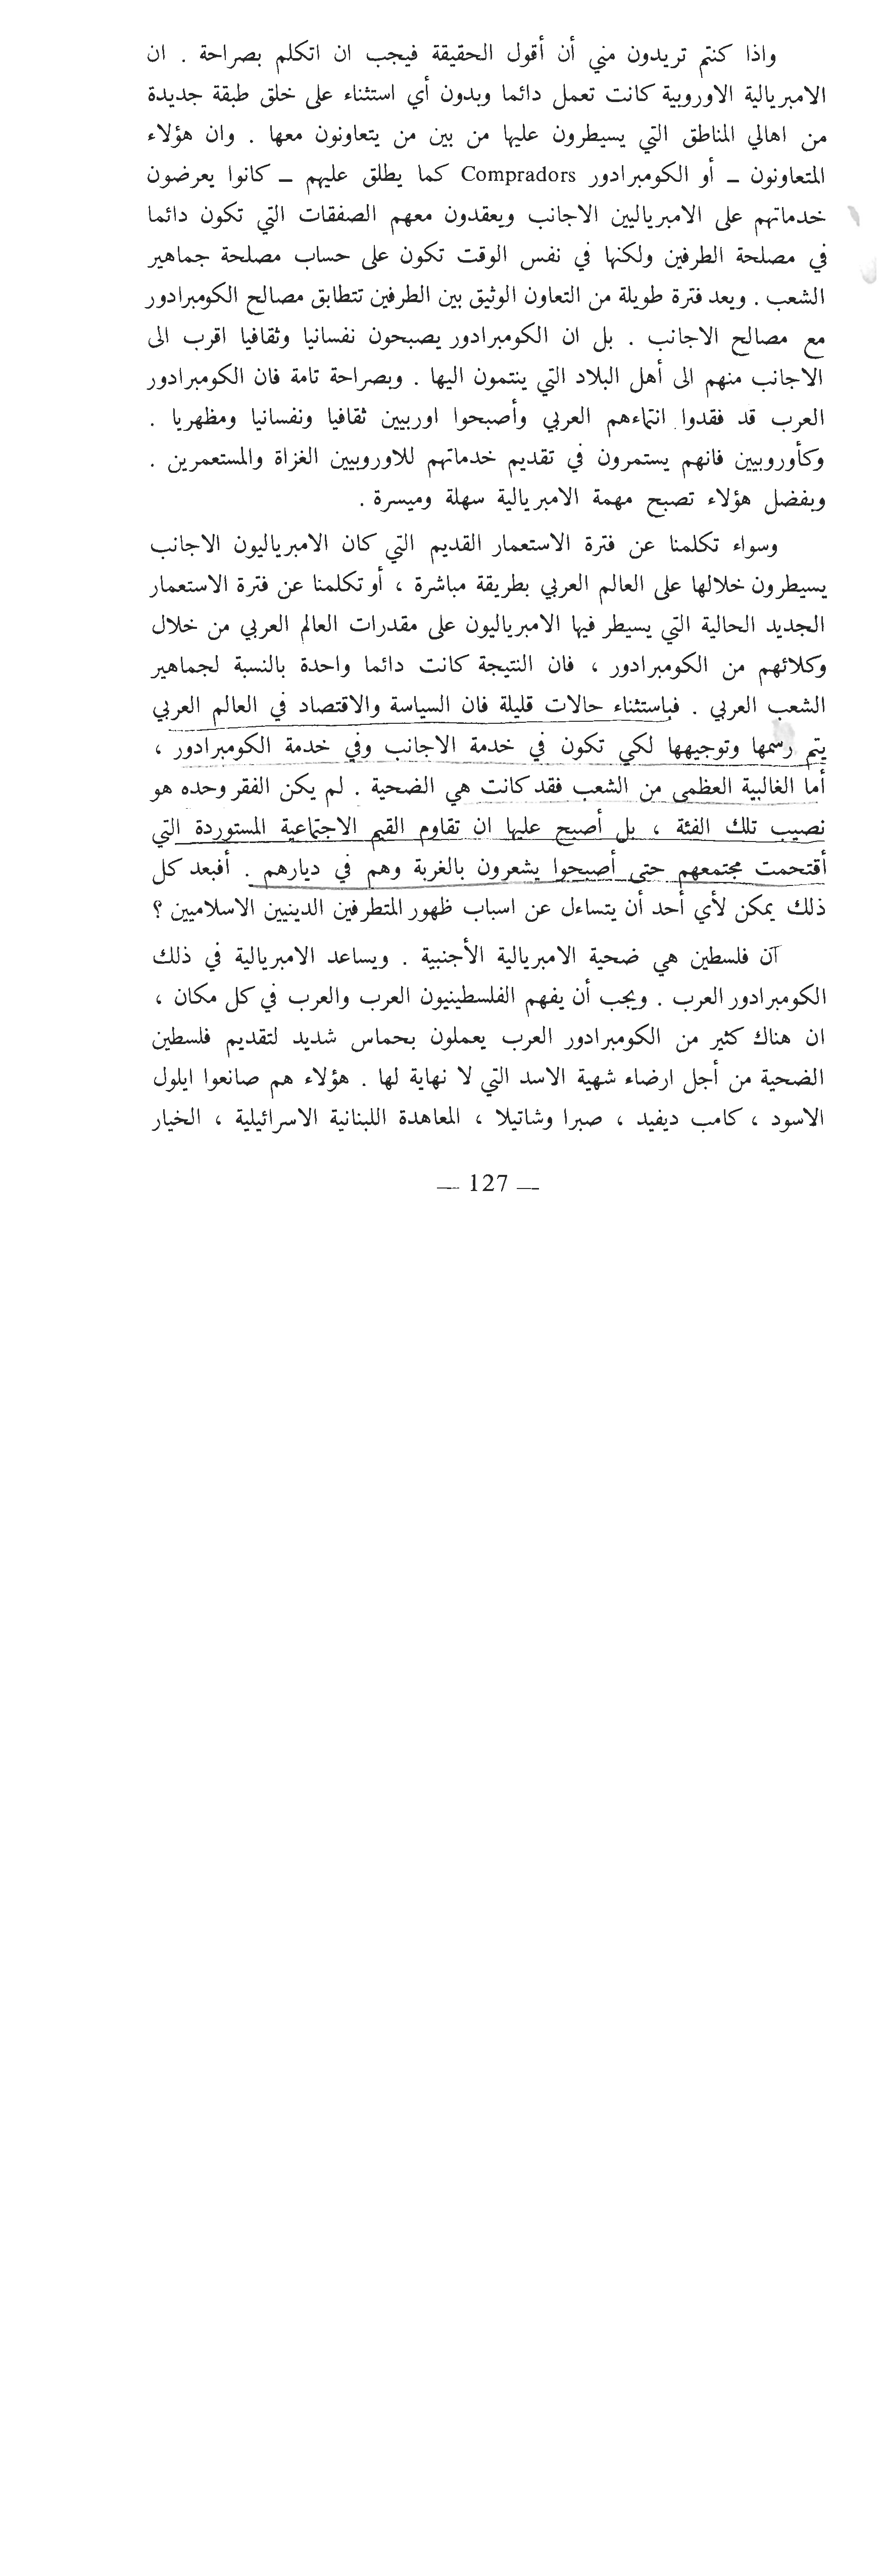 واذا كنتم تريدون مني أن أقول الحقيقة فيجب ان اتكلم بصراحة . ان
الامبريالية الاوروبية كانت تعمل دائما وبدون أي استثناء على خلق طبقة جديدة
من اهالي المناطق التي يسيطرون عليها من بين من يتعاونون معها . وان هؤلاء
المتعاونون ــ أو الكومبرادور Compradors كما يطلق عليهم ــ كانوا يعرضون
خدماتهم على الامبرياليين الاجانب ويعقدون معهم الصفقات التي تكون دائما
في مصلحة الطرفين ولكنها في نفس الوقت تكون على حساب مصلحة جماهير
الشعب . وبعد فترة طويلة من التعاون الوثيق بين الطرفين تتطابق مصالح الكومبرادور
مع مصالح الاجانب . بل ان الكومبرادور يصبحون نفسانيا وثقافيا اقرب الى
الاجانب منهم الى أهل البلاد التي ينتمون اليها . وبصراحة تامة فان الكومبرادور
العرب قد فقدوا انتماءهم العربي وأصبحوا اوربيين ثقافيا ونفسانيا ومظهريا .
وكأوروبيين فانهم يستمرون في تقديم خدماتهم للاوروبيين الغزاة والمستعمرين .
وبفضل هؤلاء تصبح مهمة الامبريالية سهلة وميسرة .
وسواء تكلمنا عن فترة الاستعمار القديم التي كان الامبرياليون الاجانب
يسيطرون خلالها على العالم العربي بطريقة مباشرة ، أو تكلمنا عن فترة الاستعمار
الجديد الحالية التي يسيطر فيها الامبرياليون على مقدرات العالم العربي من خلال
وكلائهم من الكومبرادور ، فان النتيجة كانت دائما واحدة بالنسبة لجماهير
الشعب العربي . فباستثناء حالات قليلة فان السياسة والاقتصاد في العالم العربي
يتم رسمها وتوجيهها لكي تكون في خدمة الاجانب وفي خدمة الكومبرادور ،
أما الغالبية العظمى من الشعب فقد كانت هي الضحية . لم يكن الفقر وحده هو
نصيب تلك الفئة ، بل أصبح عليها ان تقاوم القيم الاجتماعية المستوردة التي
أقتحمت مجتمعهم حتى أصبحوا يشعرون بالغربة وهم في ديارهم . أفبعد كل
ذلك يمكن لأي أحد أن يتساءل عن اسباب ظهور المتطرفين الدينيين الاسلاميين ؟
آن فلسطين هي ضحية الامبريالية الأجنبية . ويساعد الامبريالية في ذلك
الكومبرادور العرب . ويجب أن يفهم الفلسطينيون العرب والعرب في كل مكان ،
ان هناك كثير من الكومبرادور العرب يعملون بحماس شديد لتقديم فلسطين
الضحية من أجل ارضاء شهية الاسد التي لا نهاية لها . هؤلاء هم صانعوا ايلول
الاسود ، كامب ديفيد ، صبرا وشاتيلا ، المعاهدة اللبنانية الاسرائيلية ، الخيار
— 127 —